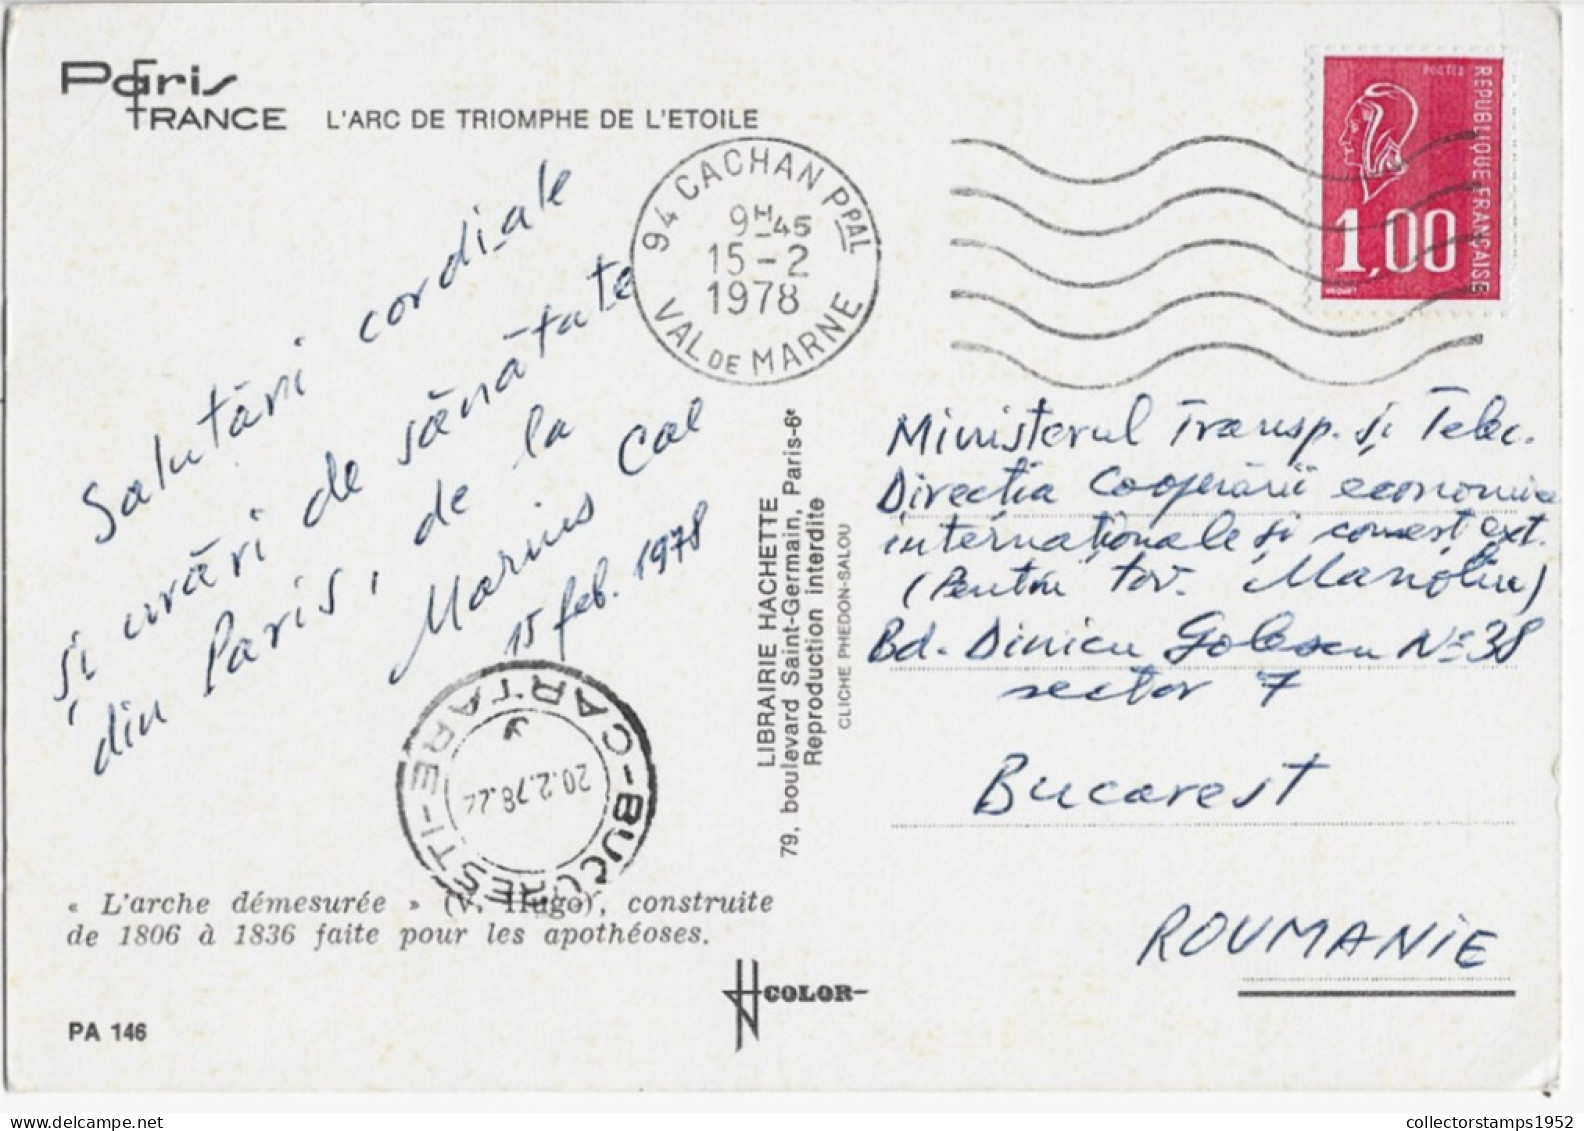 Paris
FRANCE L'ARC DE TRIOMPHE DE L'ETOILE
94 CACHAN PPAL
9H45
15-2
1978
VAL DE MARNE
POSTES
REPUBLIQUE FRANÇAISE
1,00
BEQUET
Salutări cordiale
și urări de sănătate
din Paris, de la
Marius Cal
15 feb. 1978
BUCUREȘTI-CARTARE
20.2.78
LIBRAIRIE HACHETTE
79, boulevard Saint-Germain, Paris-6e
Reproduction interdite
CLICHE PHEDON-SALOU
Ministerul Transp. și Telec.
Direcția Cooperării economice
internaționale și comerț ext.
(Pentru tov. Manoliu)
Bd. Dinicu Golescu No 38
sector 7
Bucarest
ROUMANIE
« L'arche démesurée » (V. Hugo), construite
de 1806 à 1836 faite pour les apothéoses.
COLOR
PA 146
collectorstamps1952